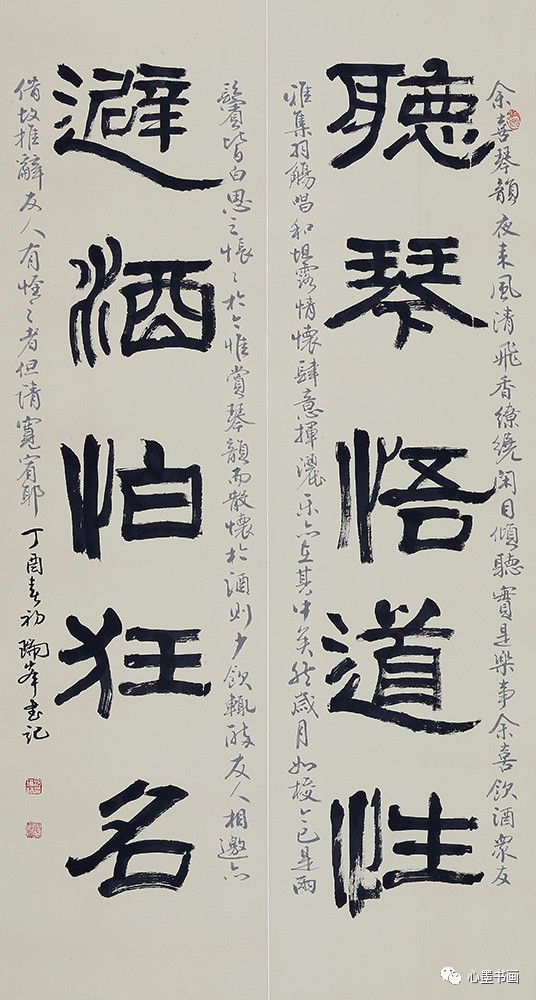 余喜琴韻夜来風清飛香繚繞闲目傾聽實是樂事余喜飲酒衆友
聽琴悟道性
雅集羽觴唱和坦露情懷肆意揮灑乐亦在其中矣然歲月如梭今已是兩
鬢皆白思之悵々於今惟賞琴韻而散懷於酒則少飲輒醉友人相邀亦
避酒怕狂名
借故推辭友人有怪之者但请寬宥耶 丁酉春初 瑞峯書记
心墨书画